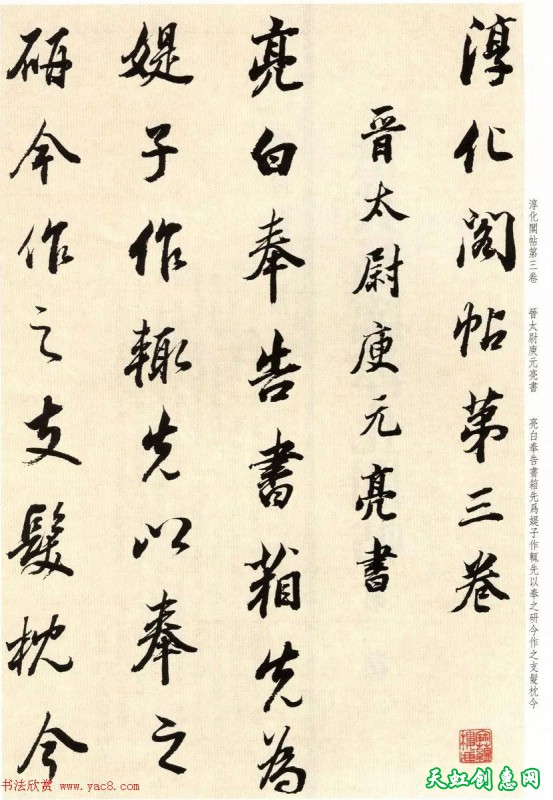 淳化阁帖第三卷
晋太尉庾元亮書
亮白奉告書箱先為
媞子作輒先以奉之
研今作之支髮枕今
淳化閣帖第三卷 晉太尉庾元亮書 亮白奉告書箱先爲媞子作輒先以奉之研今作之支髮枕今
书法欣赏 www.yac8.com
天虹创惠网